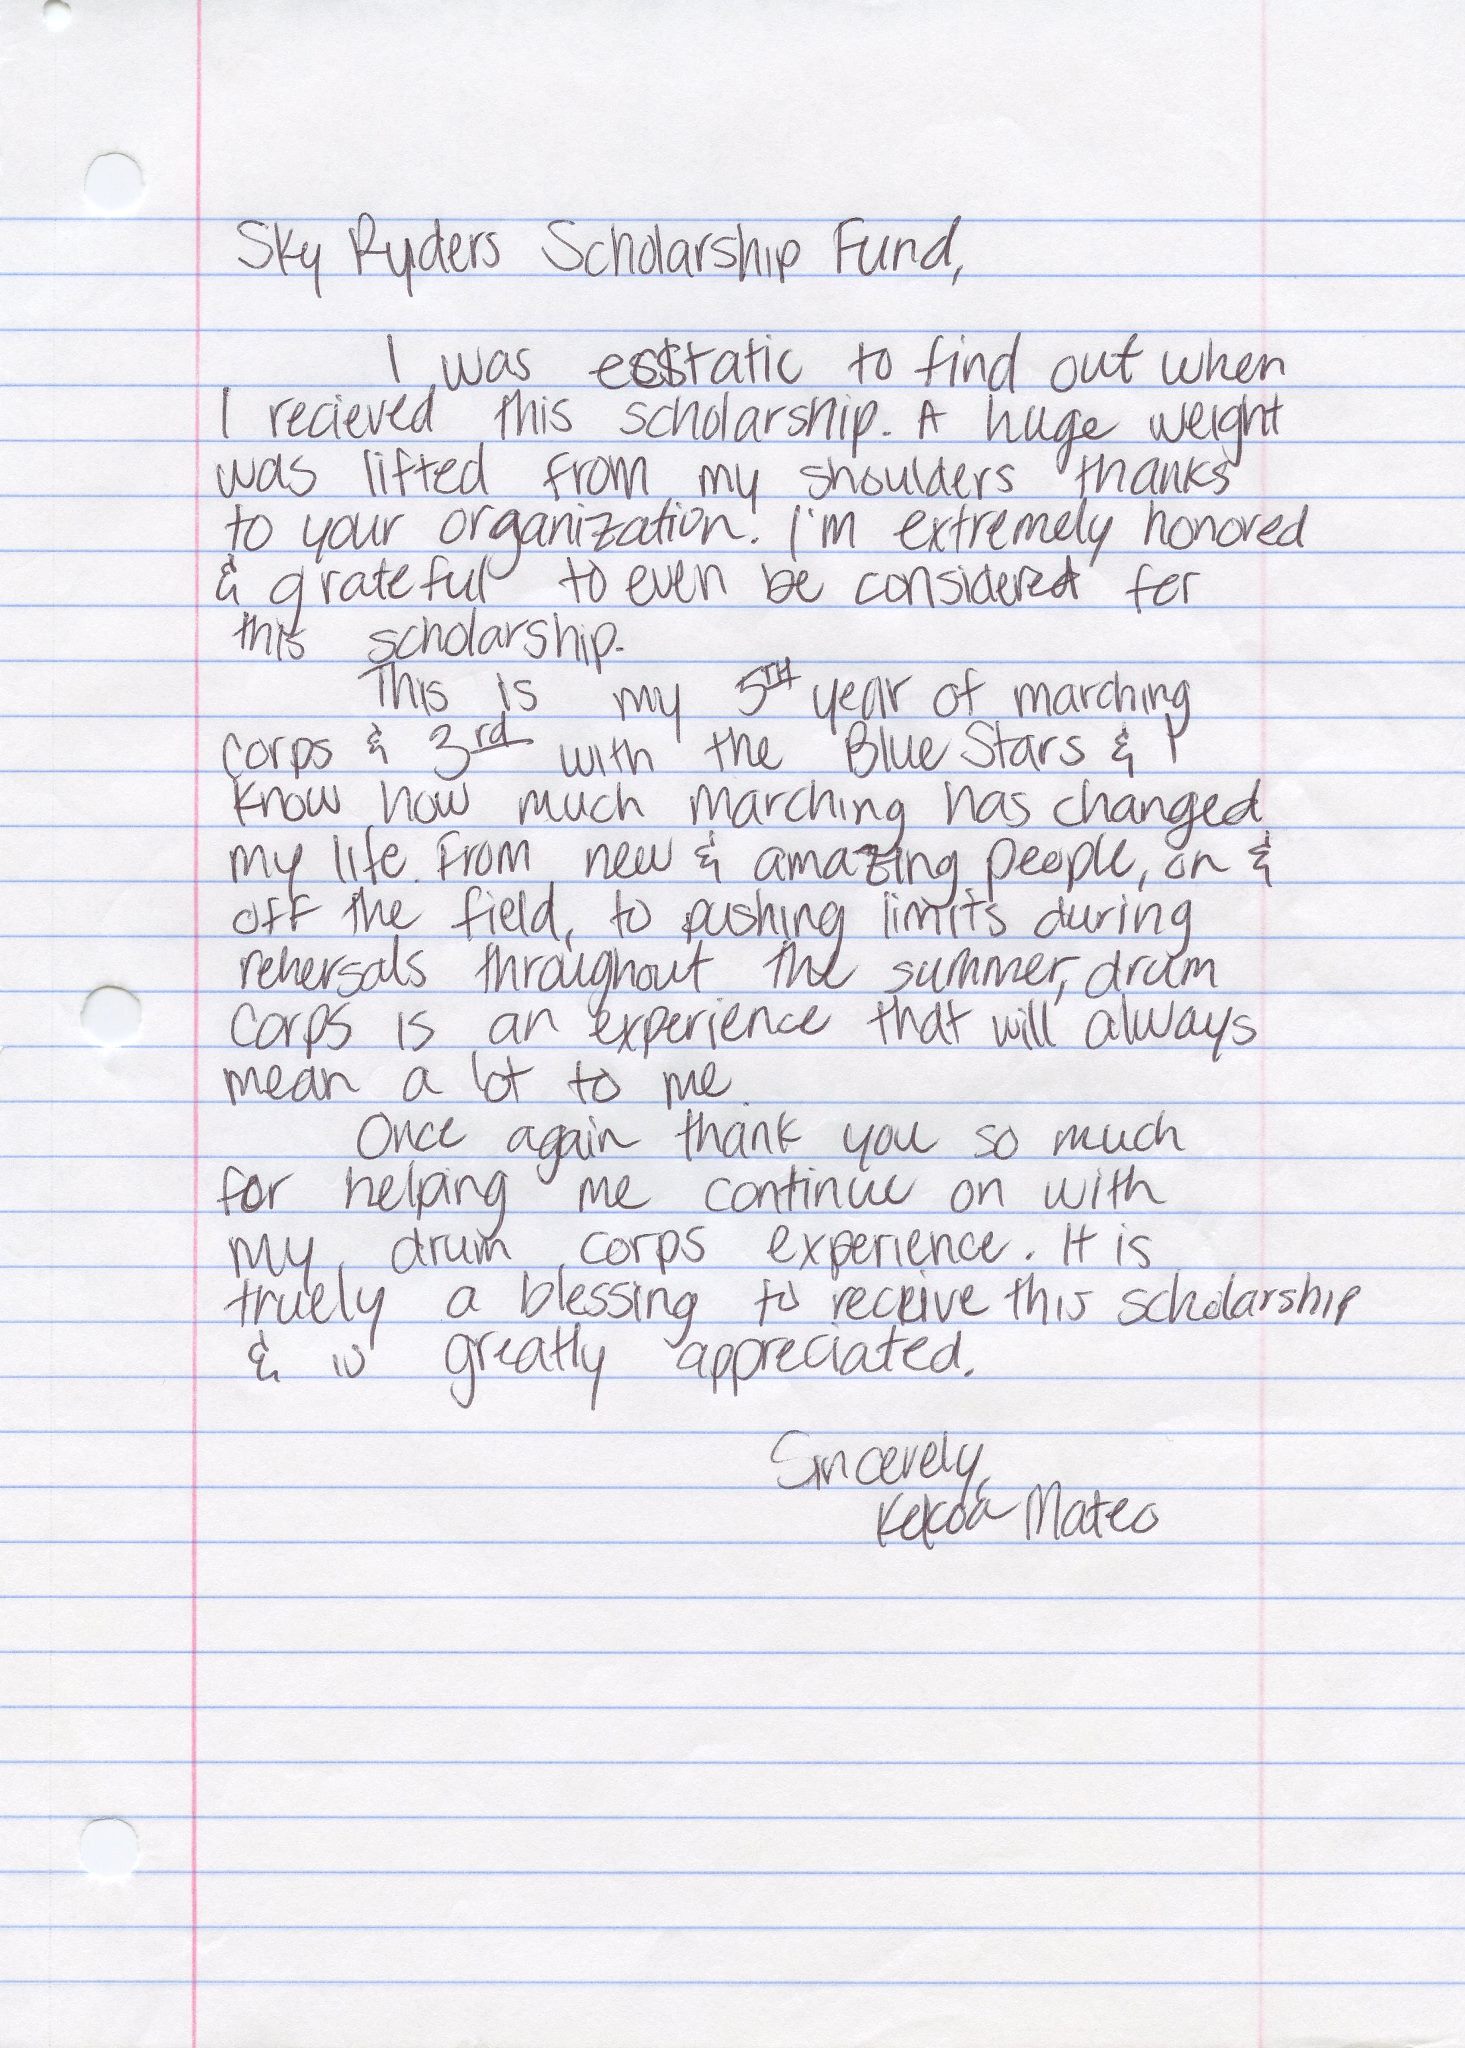 Sky Ryders Scholarship Fund,
I was ecstatic to find out when
I recieved this scholarship. A huge weight
was lifted from my shoulders thanks
to your organization. I'm extremely honored
& grateful to even be considered for
this scholarship.
This is my 5TH year of marching
corps & 3rd with the Blue Stars & I
know how much marching has changed
my life. From new & amazing people, on &
off the field, to pushing limits during
rehersals throughout the summer, drum
corps is an experience that will always
mean a lot to me.
Once again thank you so much
for helping me continue on with
my drum corps experience. It is
truely a blessing to receive this scholarship
& is greatly appreciated.
Sincerely,
Kekoa Mateo